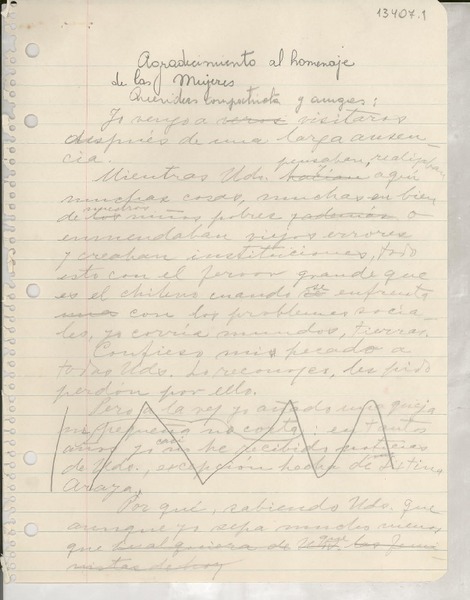 13407.1
Agradecimiento al homenaje
de las Mujeres
Queridas compatriota y amigas:
Yo vengo a veros visitaros
después de una larga ausen-
cia.
pensaban, realizaban
Mientras Uds. habían aquí
muchas cosas, muchas en bien
nuestros
de los niños pobres, además o
enmendaban viejos errores
y creaban instituciones, todo
esto con el fervor grande que
es el chileno cuando se enfrenta
unos con los problemas socia-
les, yo corría mundos, tierras.
Confieso mi pecado a
todas Uds. Lo reconozco, les pido
perdón por ello.
Pero a la vez yo añado una queja
no pequeña no corta: en tantos
casi
años yo no he recibido noticias
de Uds., excepción hecha de
Araya.
Por qué, sabiendo Uds. que
aunque yo sepa mucho menos
que cualquiera de las femi
nistas de hoy